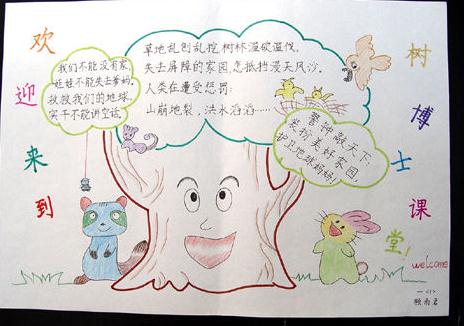 欢迎来到
我们不能没有家,
娃娃不能失去爹妈.
救救我们的地球,
实干不能讲空话。
草地乱刨乱挖,树林滥砍滥伐.
失去屏障的家园,怎抵挡漫天风沙.
人类在遭受惩罚:
山崩地裂,洪水滔滔……
警钟敲天下:
装扮美好家园,
护卫地球妈妈!
树博士课堂!
welcome
一<1>